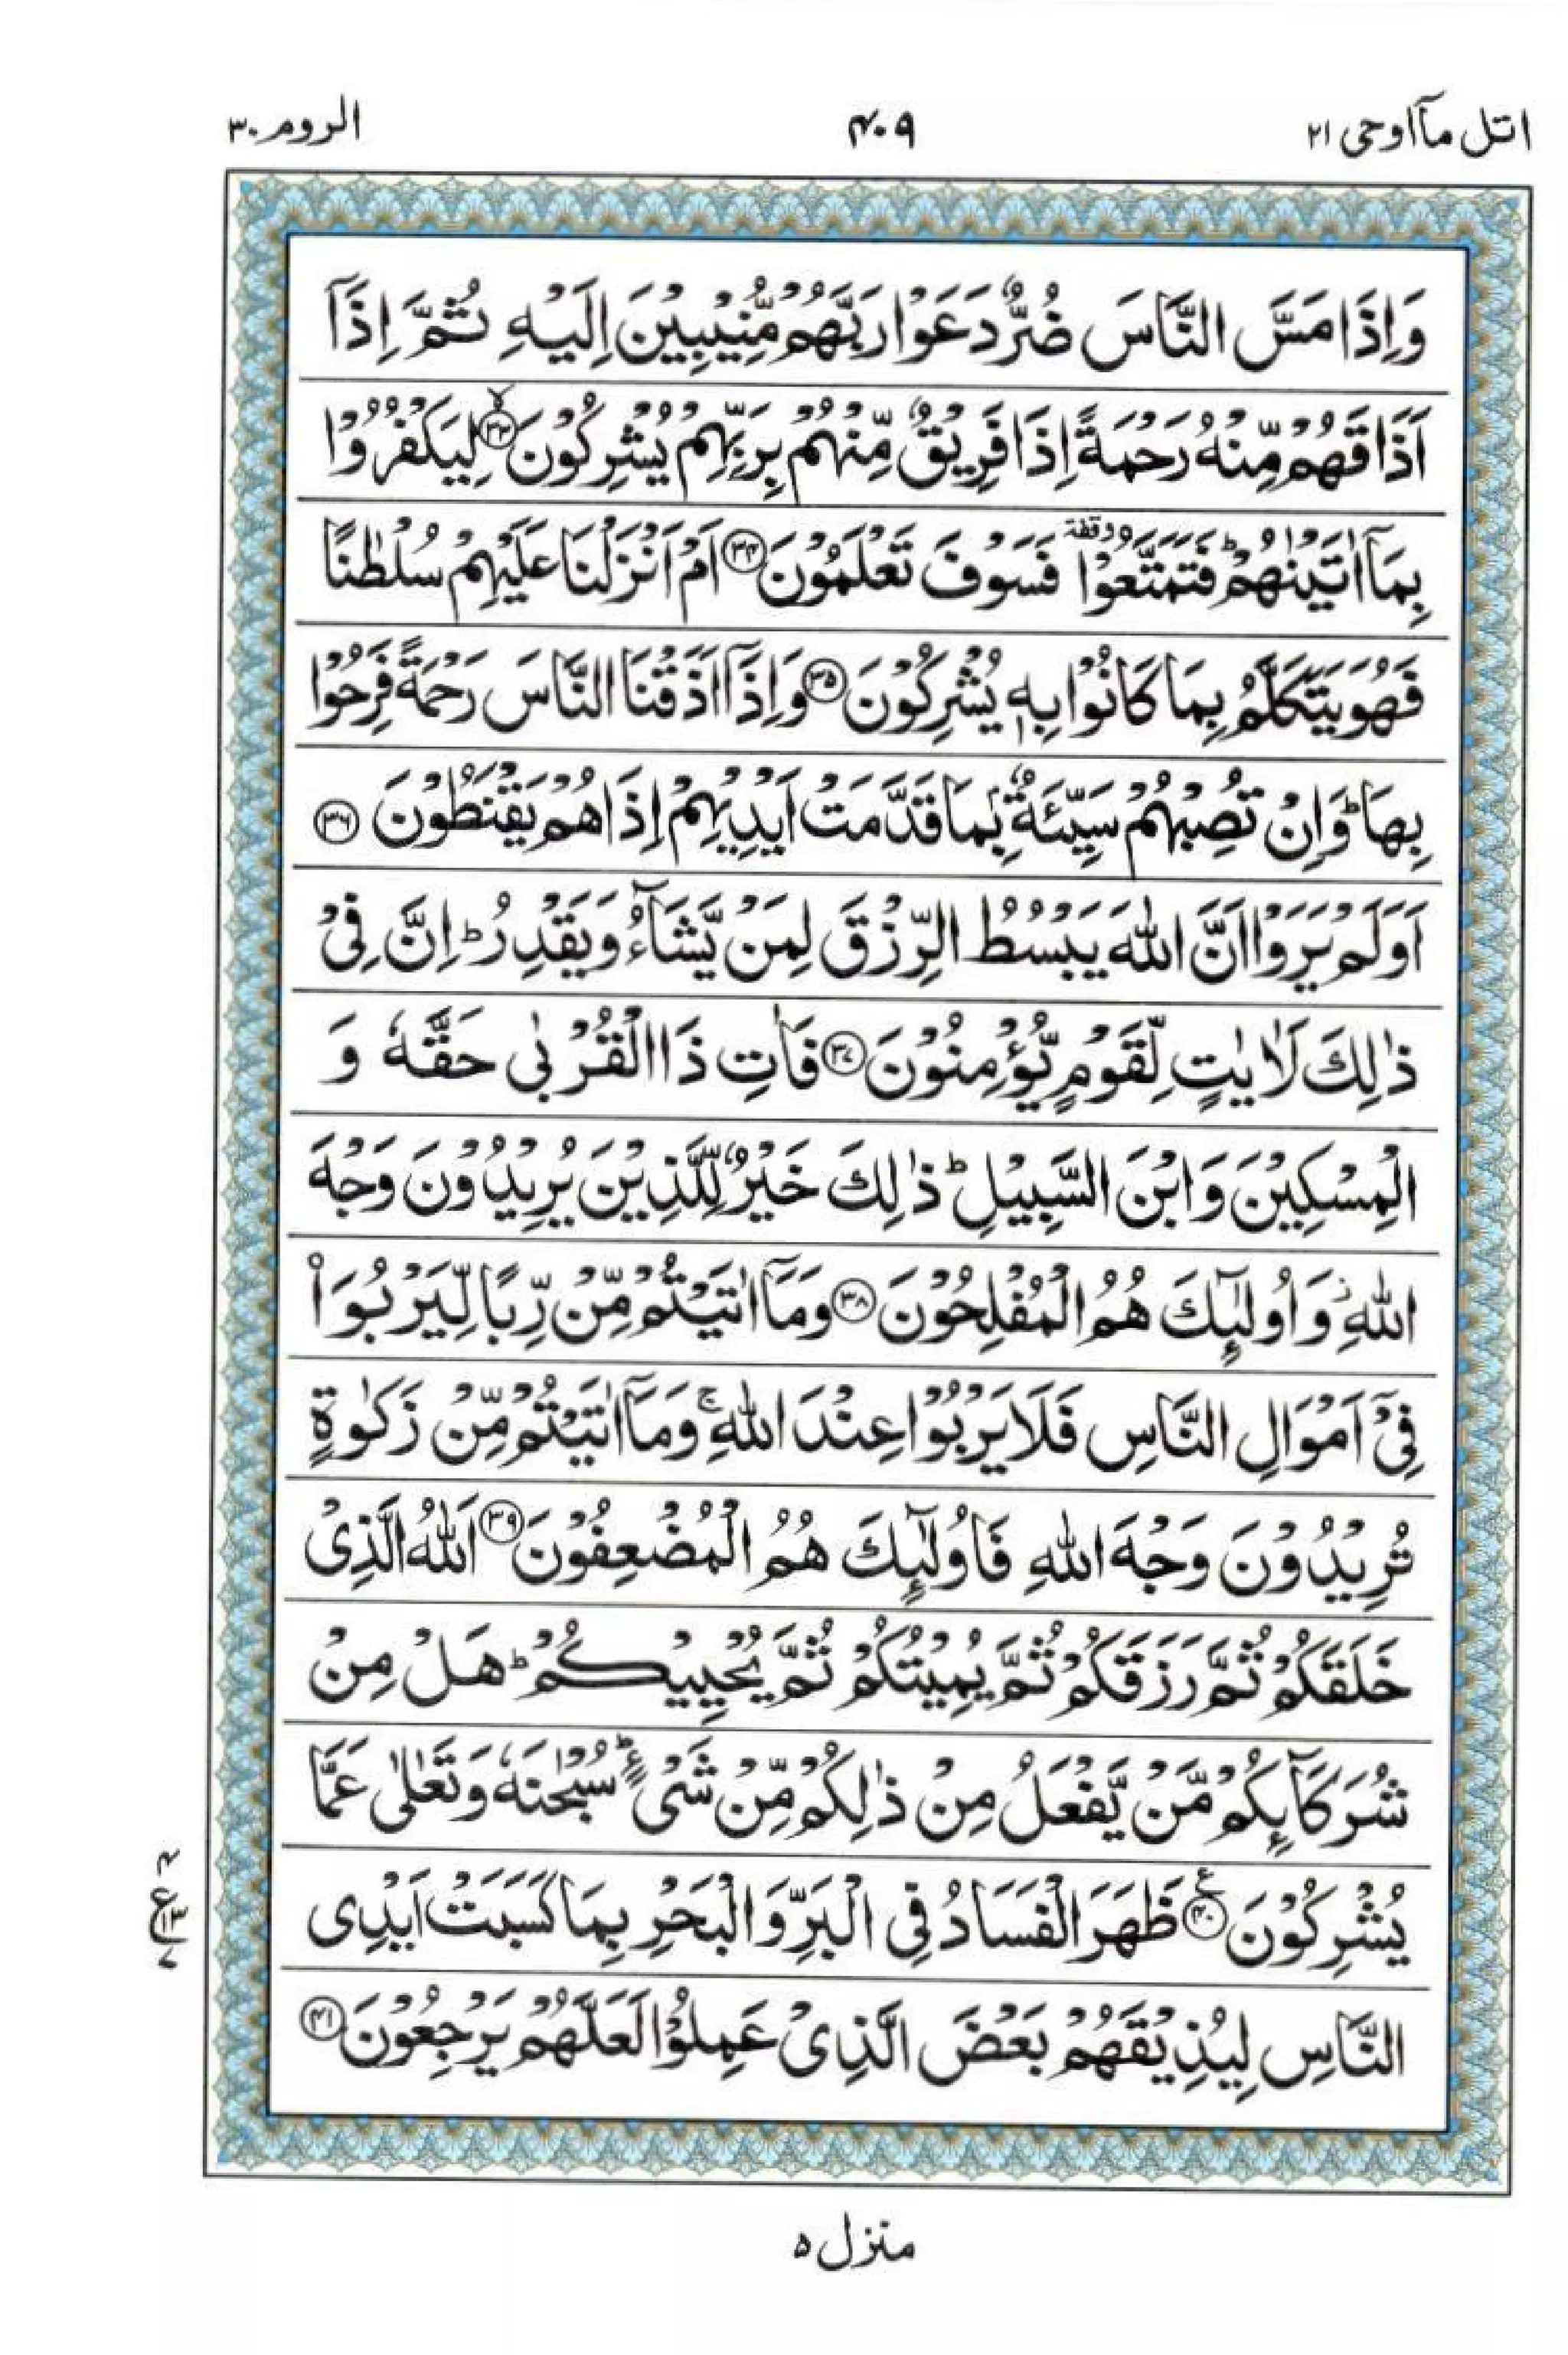 اتل مآاوحی ۲۱
۴۰۹
الروم ۳۰
وَاِذَا مَسَّ النَّاسَ ضُرٌّ دَعَوْا رَبَّهُمْ مُّنِيْبِيْنَ اِلَيْهِ ثُمَّ اِذَآ
اَذَاقَهُمْ مِّنْهُ رَحْمَةً اِذَا فَرِيْقٌ مِّنْهُمْ بِرَبِّهِمْ يُشْرِكُوْنَ ۙ۳۳ لِيَكْفُرُوْا
بِمَآ اٰتَيْنٰهُمْ ؕ فَتَمَتَّعُوْا وقفة فَسَوْفَ تَعْلَمُوْنَ ۳۴ اَمْ اَنْزَلْنَا عَلَيْهِمْ سُلْطٰنًا
فَهُوَ يَتَكَلَّمُ بِمَا كَانُوْا بِهٖ يُشْرِكُوْنَ ۳۵ وَاِذَآ اَذَقْنَا النَّاسَ رَحْمَةً فَرِحُوْا
بِهَا ؕ وَاِنْ تُصِبْهُمْ سَيِّئَةٌۢ بِمَا قَدَّمَتْ اَيْدِيْهِمْ اِذَا هُمْ يَقْنَطُوْنَ ۳۶
اَوَلَمْ يَرَوْا اَنَّ اللّٰهَ يَبْسُطُ الرِّزْقَ لِمَنْ يَّشَآءُ وَيَقْدِرُ ؕ اِنَّ فِيْ
ذٰلِكَ لَاٰيٰتٍ لِّقَوْمٍ يُّؤْمِنُوْنَ ۳۷ فَاٰتِ ذَا الْقُرْبٰى حَقَّهٗ وَ
الْمِسْكِيْنَ وَابْنَ السَّبِيْلِ ؕ ذٰلِكَ خَيْرٌ لِّلَّذِيْنَ يُرِيْدُوْنَ وَجْهَ
اللّٰهِ ؗ وَاُولٰٓئِكَ هُمُ الْمُفْلِحُوْنَ ۳۸ وَمَآ اٰتَيْتُمْ مِّنْ رِّبًا لِّيَرْبُوَا۟
فِيْٓ اَمْوَالِ النَّاسِ فَلَا يَرْبُوْا عِنْدَ اللّٰهِ ۚ وَمَآ اٰتَيْتُمْ مِّنْ زَكٰوةٍ
تُرِيْدُوْنَ وَجْهَ اللّٰهِ فَاُولٰٓئِكَ هُمُ الْمُضْعِفُوْنَ ۳۹ اَللّٰهُ الَّذِيْ
خَلَقَكُمْ ثُمَّ رَزَقَكُمْ ثُمَّ يُمِيْتُكُمْ ثُمَّ يُحْيِيْكُمْ ؕ هَلْ مِنْ
شُرَكَآئِكُمْ مَّنْ يَّفْعَلُ مِنْ ذٰلِكُمْ مِّنْ شَيْءٍ ؕ سُبْحٰنَهٗ وَتَعٰلٰى عَمَّا
يُشْرِكُوْنَ ۴۰ۧ ظَهَرَ الْفَسَادُ فِي الْبَرِّ وَالْبَحْرِ بِمَا كَسَبَتْ اَيْدِي
النَّاسِ لِيُذِيْقَهُمْ بَعْضَ الَّذِيْ عَمِلُوْا لَعَلَّهُمْ يَرْجِعُوْنَ ۴۱
۴
ع ۱۳
۷
منزل ۵